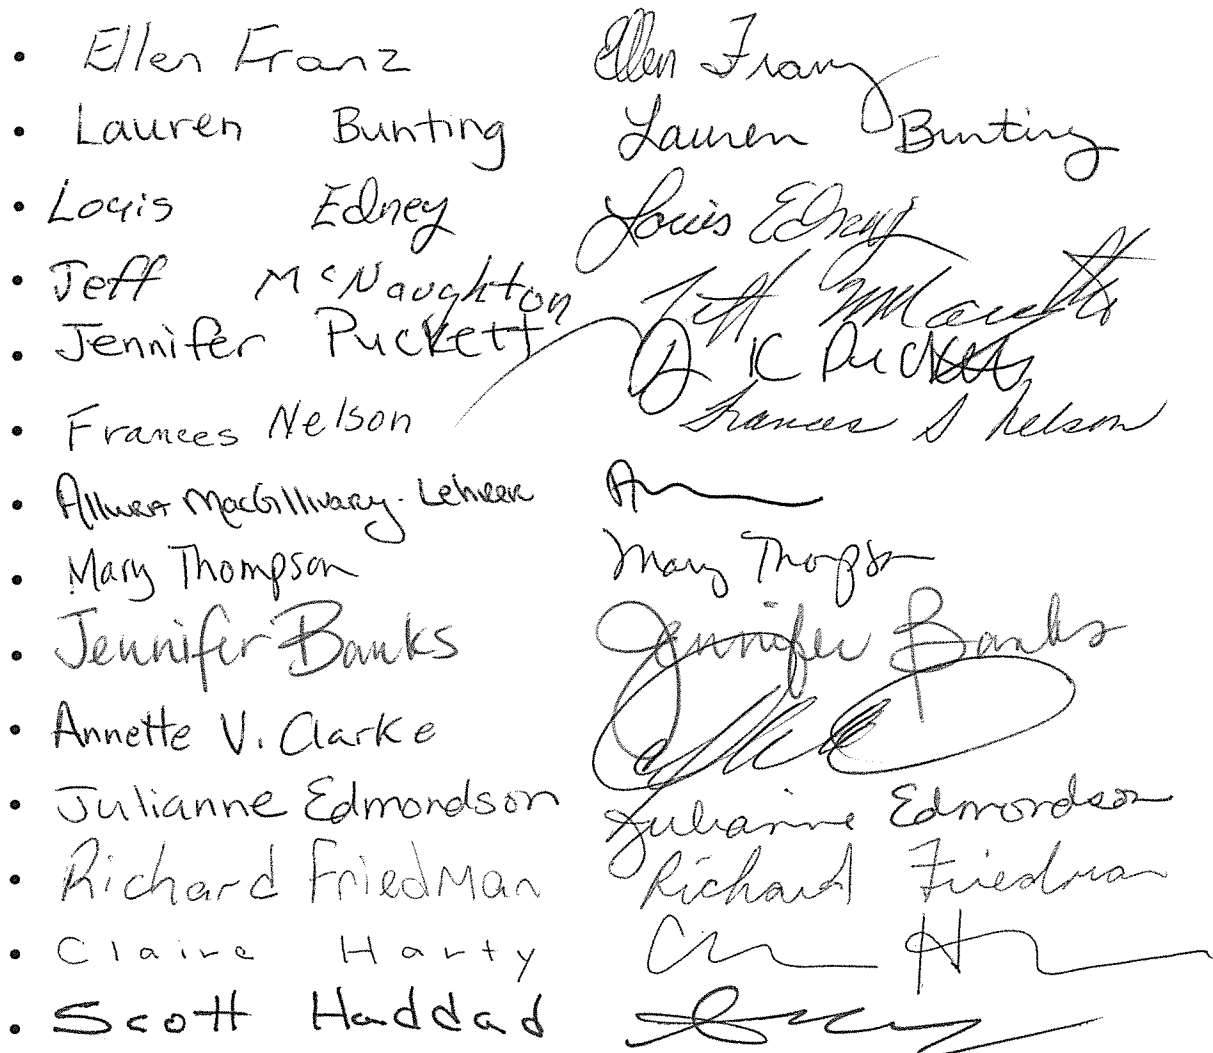 Ellen Franz Ellen Franz
Lauren Bunting Lauren Bunting
Louis Edney Louis Edney
Jeff McNaughton Jeff
Jennifer Puckett K Puckett
Frances Nelson Frances S Nelson
MacGillivary-Lehrer
Mary Thompson Mary Thompson
Jennifer Banks Jennifer Banks
Annette V. Clarke
Julianne Edmondson Julianne Edmondson
Richard Friedman Richard Friedman
Claire Harty
Scott Haddad